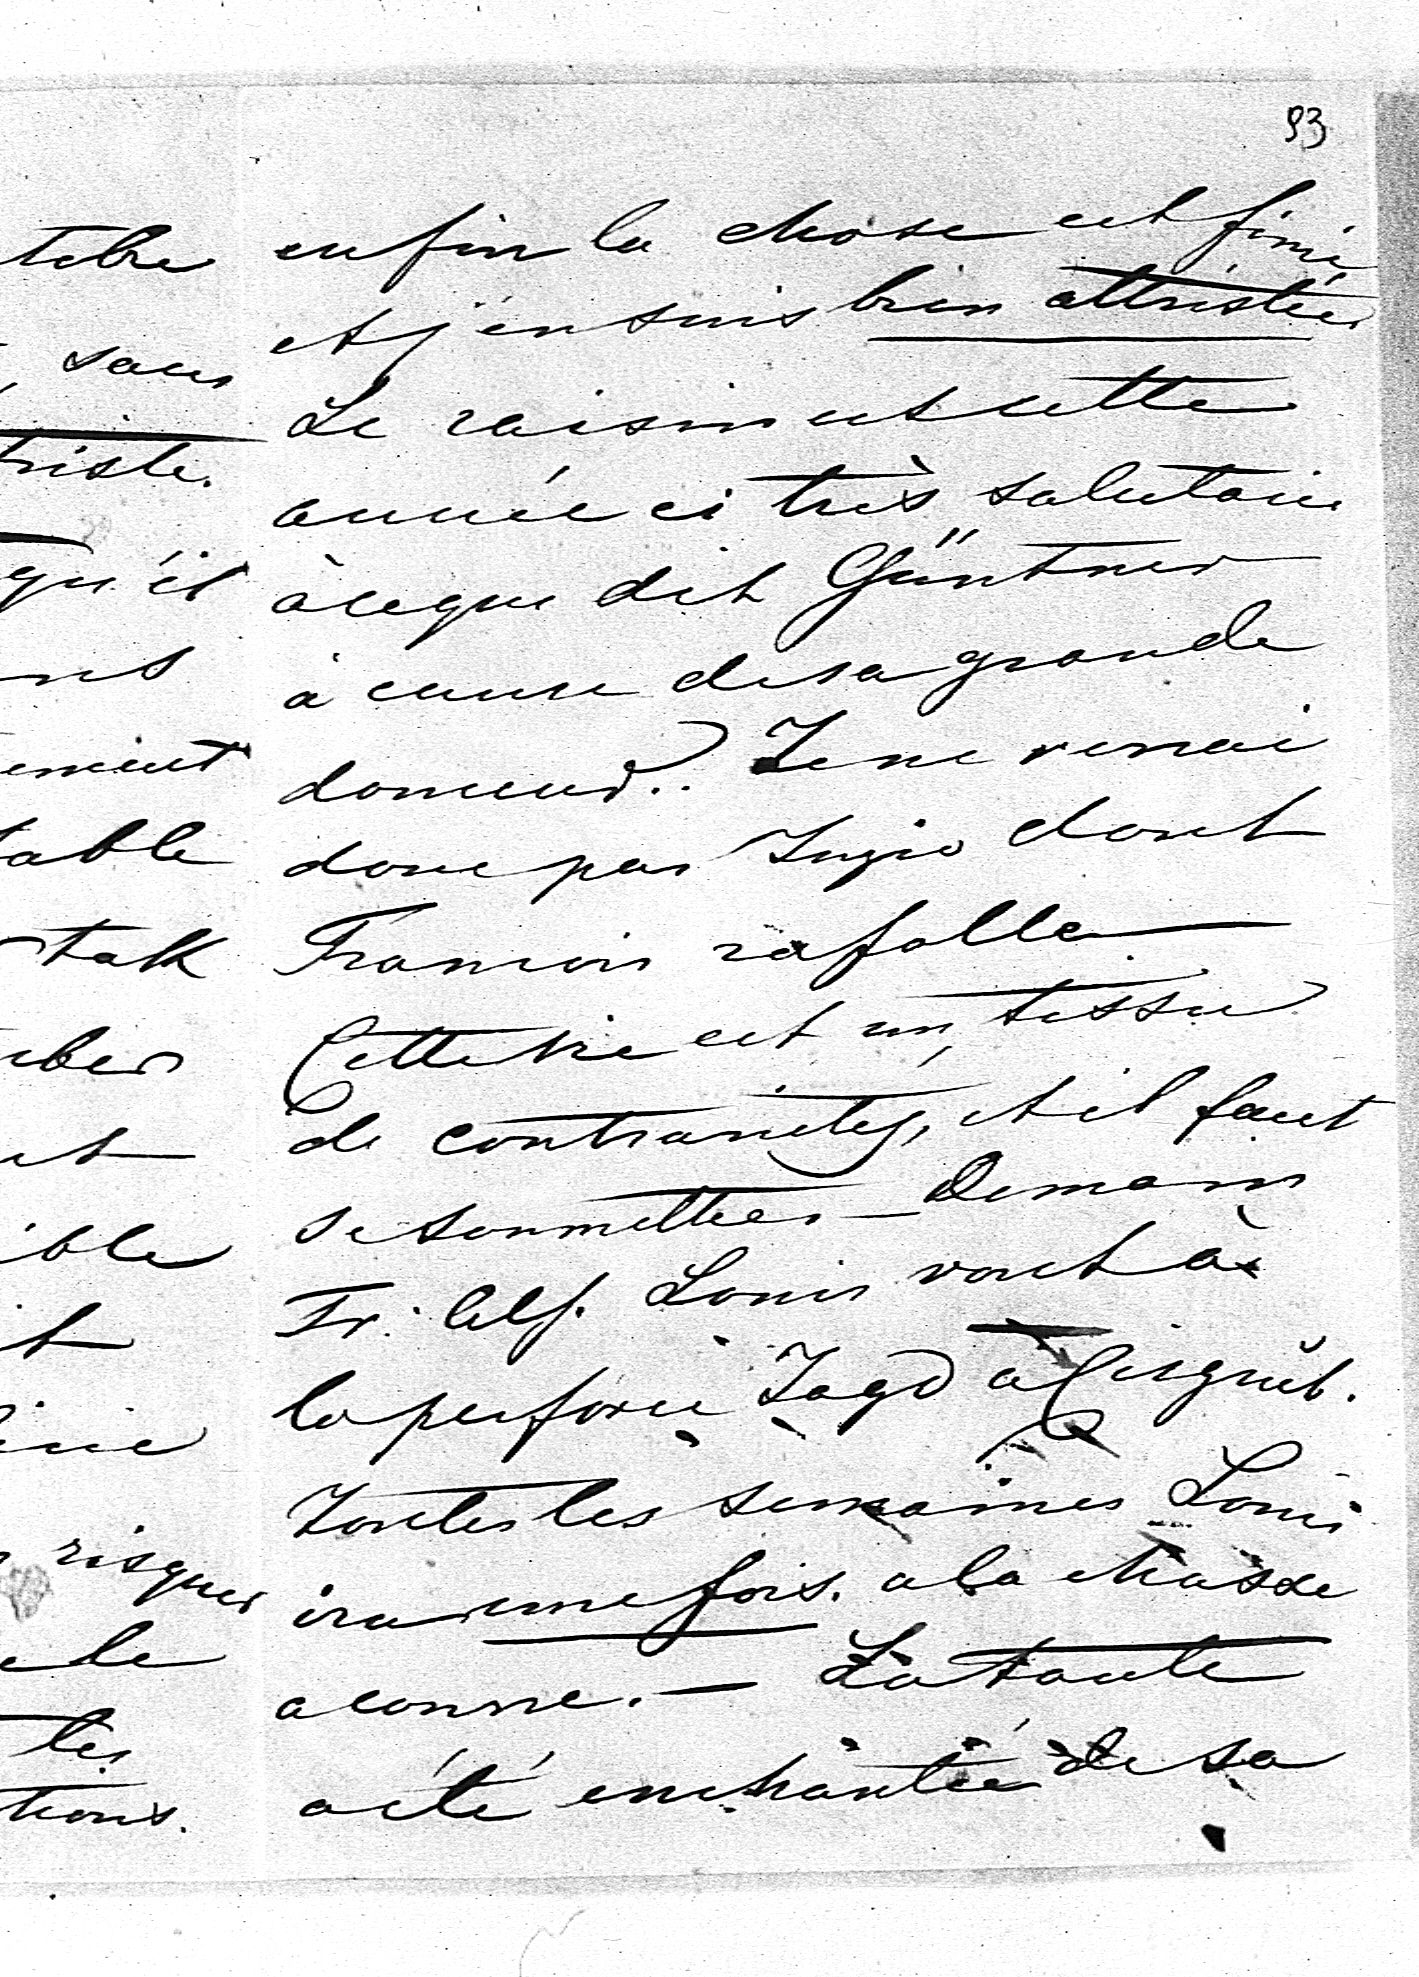 93
enfin la chose est finie
et j'en suis bien attristée
Le raisin est cette
année ci très salutaire
à ce que dit Güntner
à cause de sa grande
douceur. Je ne verrai
donc pas dont
François raffolle
Cette vie est un tissu
de contrariétés, et il faut
se soumettre — Demain
Fr. Louis vont à
la perforce Jagd a
Toutes les semaines Louis
ira une fois a la chasse
a courre. — La tante
a été enchantée de sa
sans
triste.
qu'il
ble
risquer
le
les
tions.